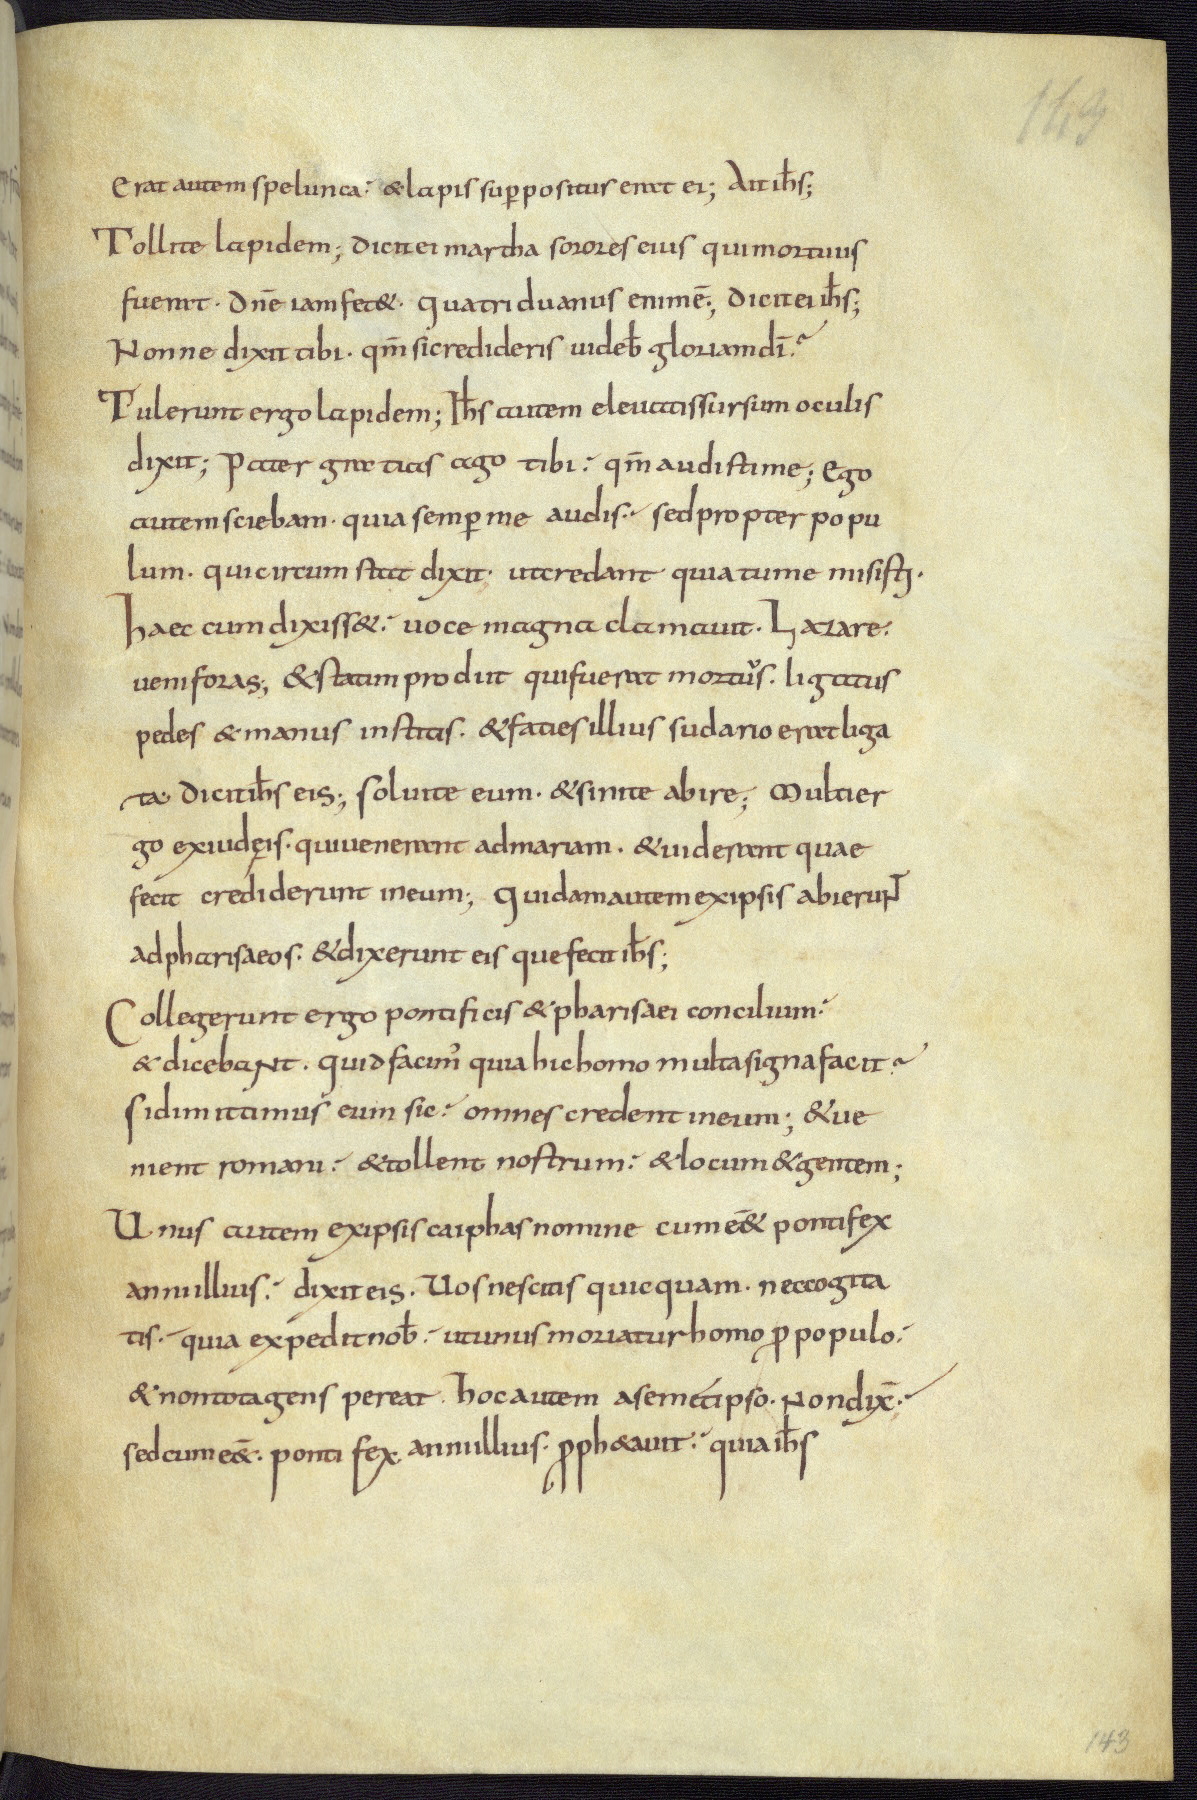 149
Erat autem spelunca: & lapis sup̄positus erat ei; Ait ih̄s;
Tollite lapidem; Dicit ei martha sorores eius qui mortuus
fuerat. Dn̄e iam fet&. Quatriduanus enim ē; Dicit ei ih̄s;
Nonne dixit tibi. qm̄ si credideris uideb̄ gloriam dī:
Tulerunt ergo lapidem; Ih̄s autem eleuatis sursum oculis
dixit; Pater gratias ago tibi: qm̄ audisti me; Ego
autem sciebam. quia semp̄ me audis: sed propter popu
lum. qui circum stat dixit. ut credant quia tu me misisti.
Haec cum dixiss&: uoce magna clamauit. Lazare:
ueni foras; & statim prodiit qui fuerat mortuͦs. ligatus
pedes & manus institis. & facies illius sudario erat liga
ta. Dicit ih̄s eis; soluite eum. & sinite abire; Multi er
go ex iudęis. qui uenerant ad mariam. & uiderant quae
fecit crediderunt in eum; Quidam autem ex ipsis abierunt
ad pharisaeos. & dixerunt eis que fecit ih̄s;
Collegerunt ergo pontificis & pharisaei concilium:
& dicebant. quid facimꝰ quia hic homo multa signa facit:
Si dimittimus eum sic: omnes credent in eum; & ue
nient romani: & tollent nostrum: & locum & gentem;
Unus autem ex ipsis caiphas nomine cum eē& pontifex
anni illius: dixit eis. Uos nescitis quicquam. nec cogita
tis: quia expedit nob̄: ut unus moriatur homo ꝓ populo:
& non tota gens pereat. Hoc autem a semetipso. Non dix̄:
sed cum eē&. pontifex anni illius. ꝓph&auit: quia ih̄s
143